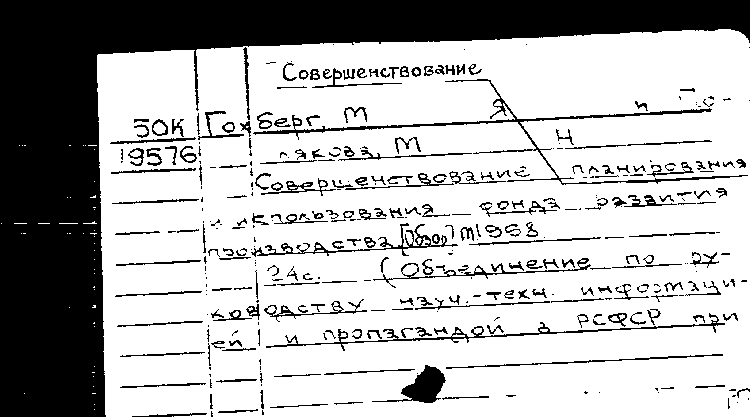 Совершенствование
50К Гохберг, М Я и По-
19576 лякова, М Н
Совершенствование планирования
и использования фонда развития
производства [Обзор] М 1968
24с. (Объединение по ру-
ководству науч.-техн. информаци-
ей и пропагандой в РСФСР при